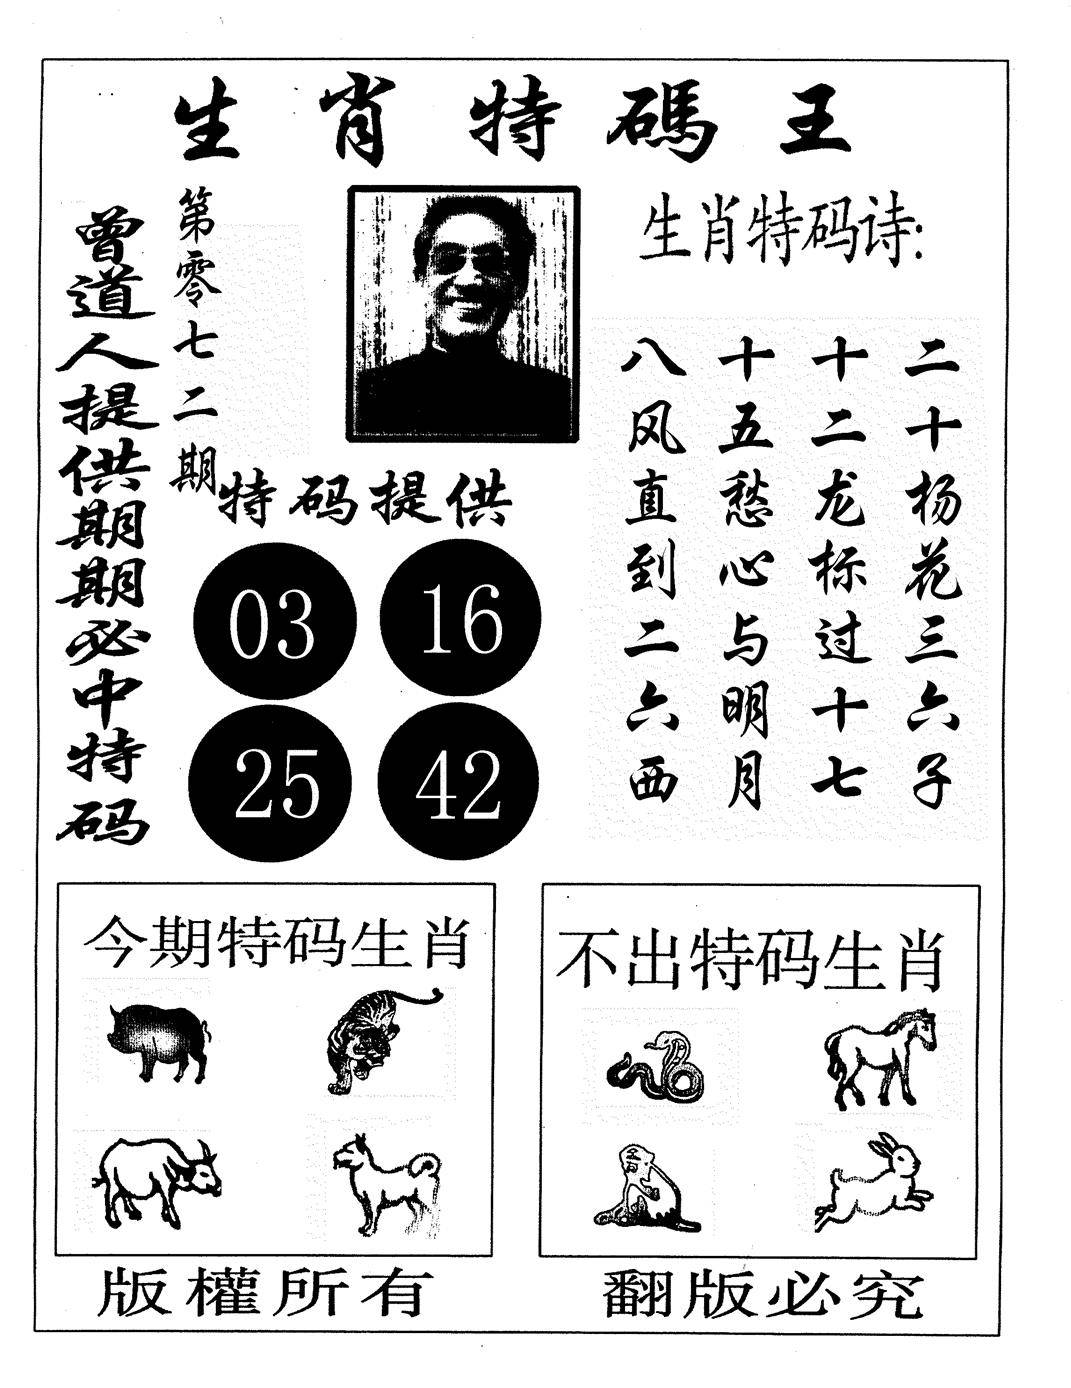 生肖特碼王
曾道人提供期期必中特码
第零七二期
生肖特码诗:
二十杨花三六子
十二龙标过十七
十五愁心与明月
八风直到二六西
特码提供
03 16
25 42
今期特码生肖
不出特码生肖
版權所有
翻版必究